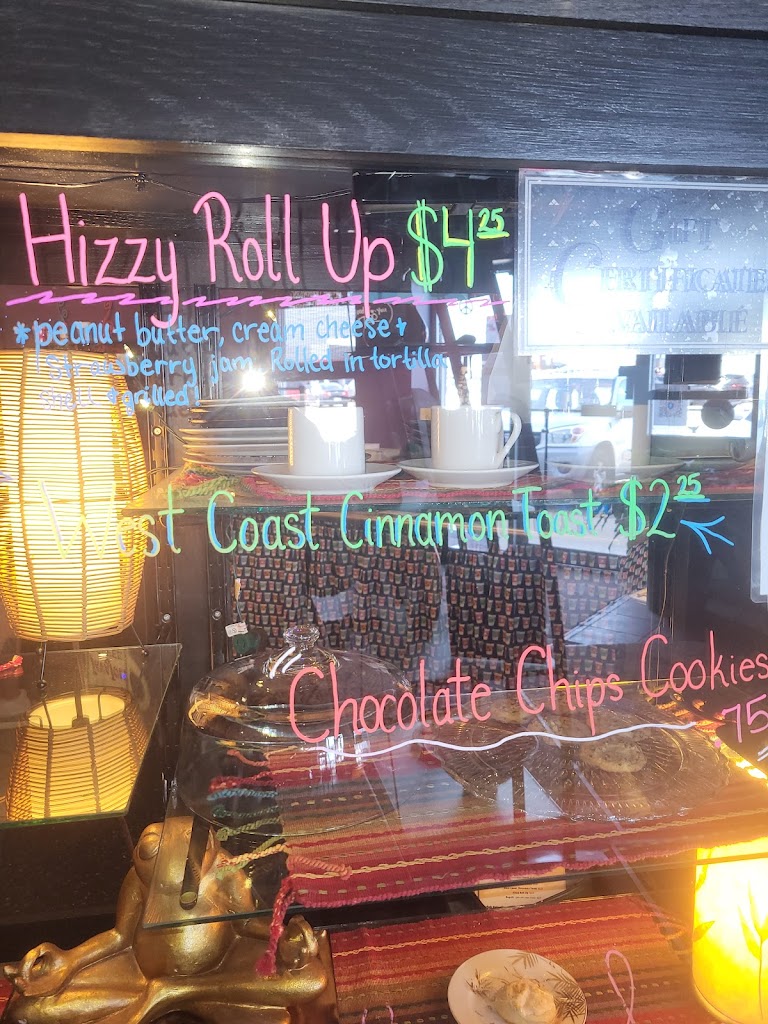 Hizzy Roll Up $4 25
*peanut butter, cream cheese +
Strawberry jam. Rolled in tortilla
shell + grilled!
GIFT
CERTIFICATES
AVAILABLE
West Coast Cinnamon Toast $2 25
Chocolate Chips Cookies
.75